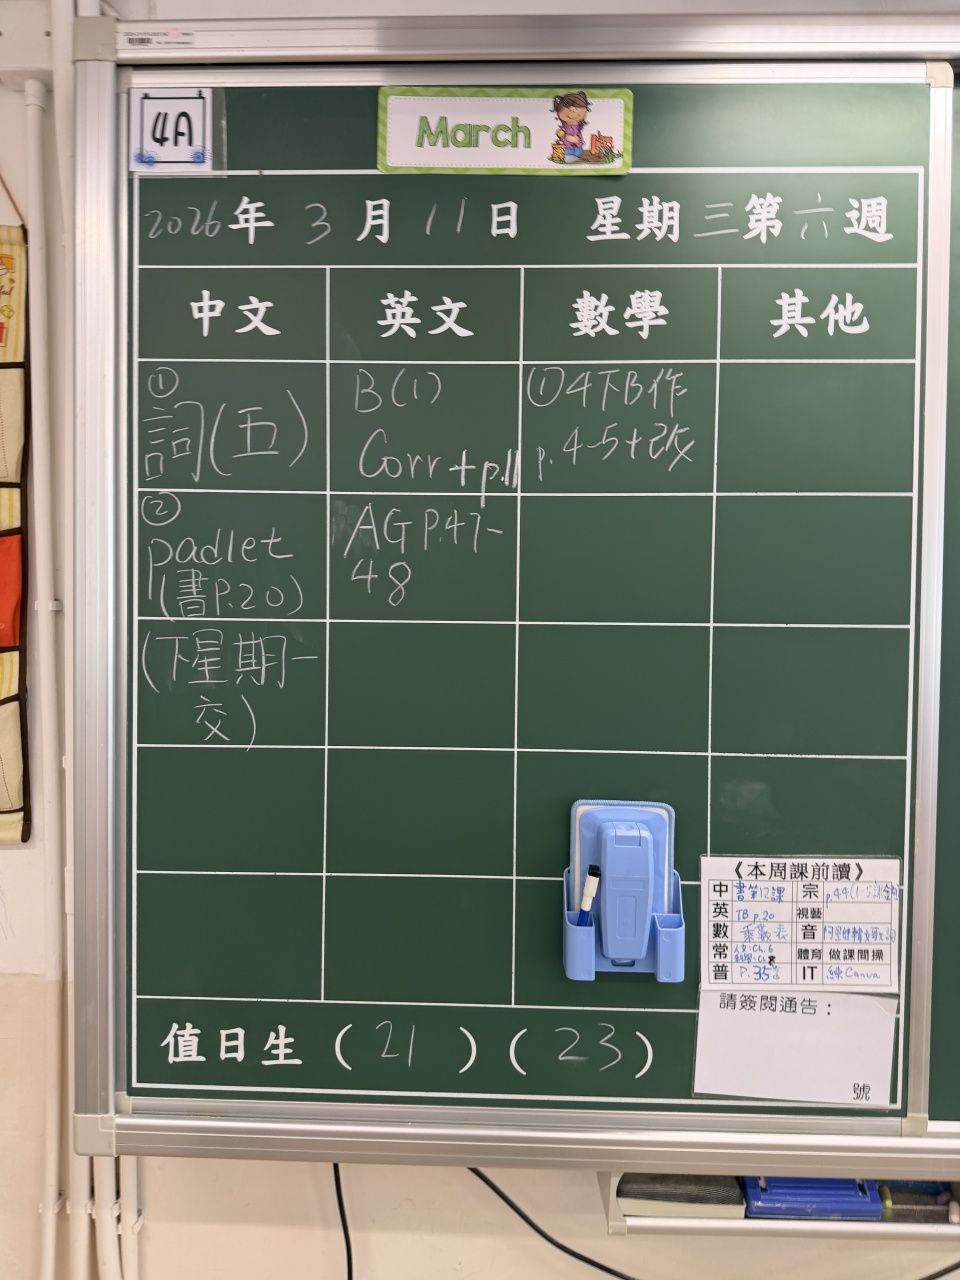 4A
March
2026年 3月11日 星期三第六週
中文 英文 數學 其他
①
詞(五)
B(1)
Corr + p.11
①4下B作
p.4-5+改
②
padlet
(書P.20)
AG P.47-
48
(下星期一
交)
值日生 (21)(23)
《本周課前讀》
中 書第12課 宗
英 TB p.20 視藝
數 乘數表 音
常 體育 做課間操
普 P.35 IT 練Canva
請簽閱通告：
號